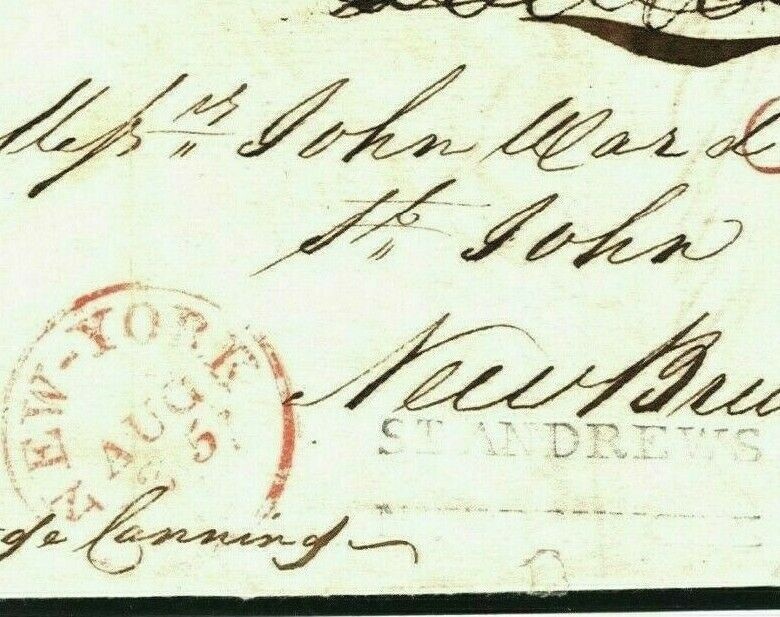 Messrs John Ward
St. John
New Bru
NEW-YORK
AUG
5
ST ANDREWS
ge Canning